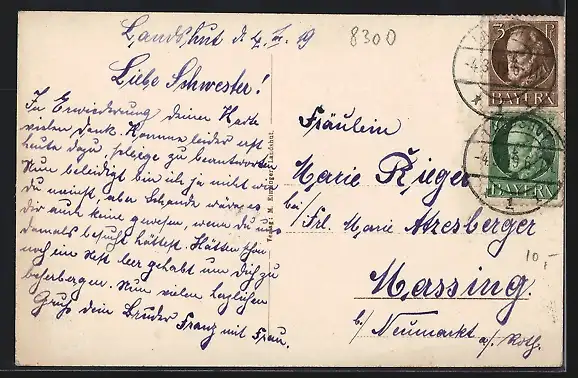 Landshut d. 4. III. 19
8300
Liebe Schwester!
In Erwiederung deiner Karte
vielen Dank. Komme leider erst
heute dazu selbige zu beantworten
Nun beleidigt bin ich ja nicht wie
du meinst, aber Schande wäre es
dir auch keine gewesen, wenn du uns
damals besucht hättest. Hätten schon
noch ein Bett leer gehabt um dich zu
beherbergen. Nun vielen herzlichen
Gruß dein Bruder Franz mit Frau.
Verlag: M. Landshut.
Fräulein
Marie Rieger
bei/ Frl. Marie Atzesberger
Massing.
b/ Neumarkt a/. Roth.
10,-
3 P
BAYERN
BAYERN